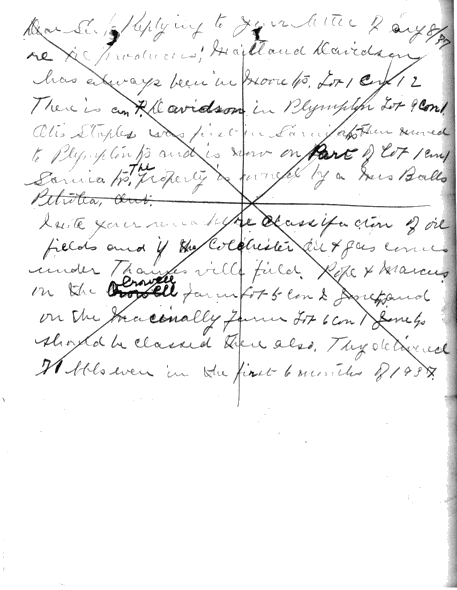 Dear Sir Replying to your letter of Aug 8/37
re oil producers; Maitland Davidson
has always been in Moore tp. Lot 1 Con 12
There is an F. Davidson in Plympton Lot 9 Con 1.
Otis Staples was first in Sarnia tp then moved
to Plympton tp and is now on Part of Lot 1 Con 1
Sarnia tp, The property is owned by a Mrs Balls
Petrolea, Ont.
I note your remarks re classification of oil
fields and if the Colchester oil & gas comes
under Thamesville field. Pope & Marcus
on the Crowell farm Lot 5 Con 2 tp and
on the farm Lot 6 Con 1 tp
should be classed there also. They delivered
71 bbls even in the first 6 months of 1937.